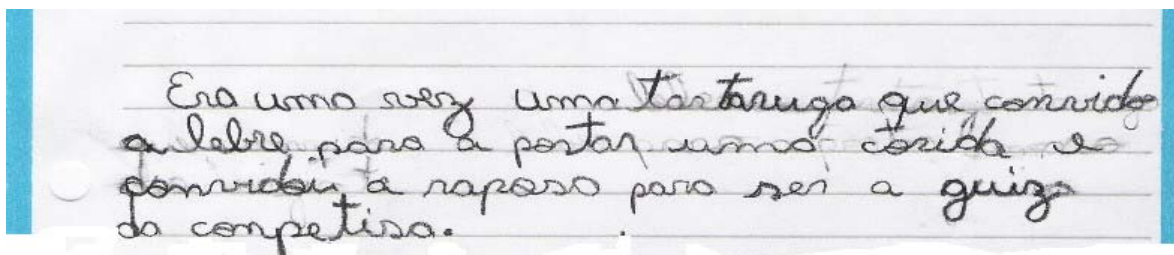 Era uma vez uma tartaruga que convido
a lebre para a postar uma corida e
convidou a raposo para ser a guiza
da competisa.